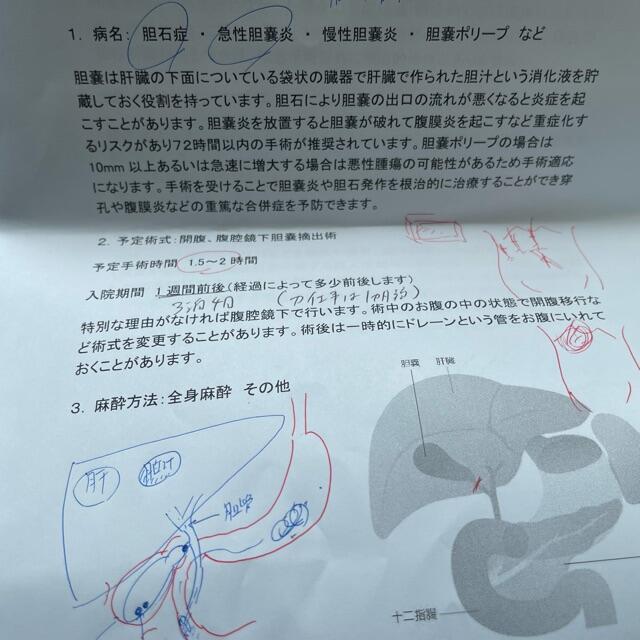 1. 病名: 胆石症 ・ 急性胆嚢炎 ・ 慢性胆嚢炎 ・ 胆嚢ポリープ など
胆嚢は肝臓の下面についている袋状の臓器で肝臓で作られた胆汁という消化液を貯
蔵しておく役割を持っています。胆石により胆嚢の出口の流れが悪くなると炎症を起
こすことがあります。胆嚢炎を放置すると胆嚢が破れて腹膜炎を起こすなど重症化す
るリスクがあり72時間以内の手術が推奨されています。胆嚢ポリープの場合は
10mm以上あるいは急速に増大する場合は悪性腫瘍の可能性があるため手術適応
になります。手術を受けることで胆嚢炎や胆石発作を根治的に治療することができ穿
孔や腹膜炎などの重篤な合併症を予防できます。
2. 予定術式:開腹、腹腔鏡下胆嚢摘出術
予定手術時間 1.5～2時間
入院期間 1週間前後(経過によって多少前後します)
3泊4日
特別な理由がなければ腹腔鏡下で行います。術中のお腹の中の状態で開腹移行な
ど術式を変更することがあります。術後は一時的にドレーンという管をお腹にいれて
おくことがあります。
3. 麻酔方法:全身麻酔 その他
胆嚢 肝臓
肝 胆汁
十二指腸